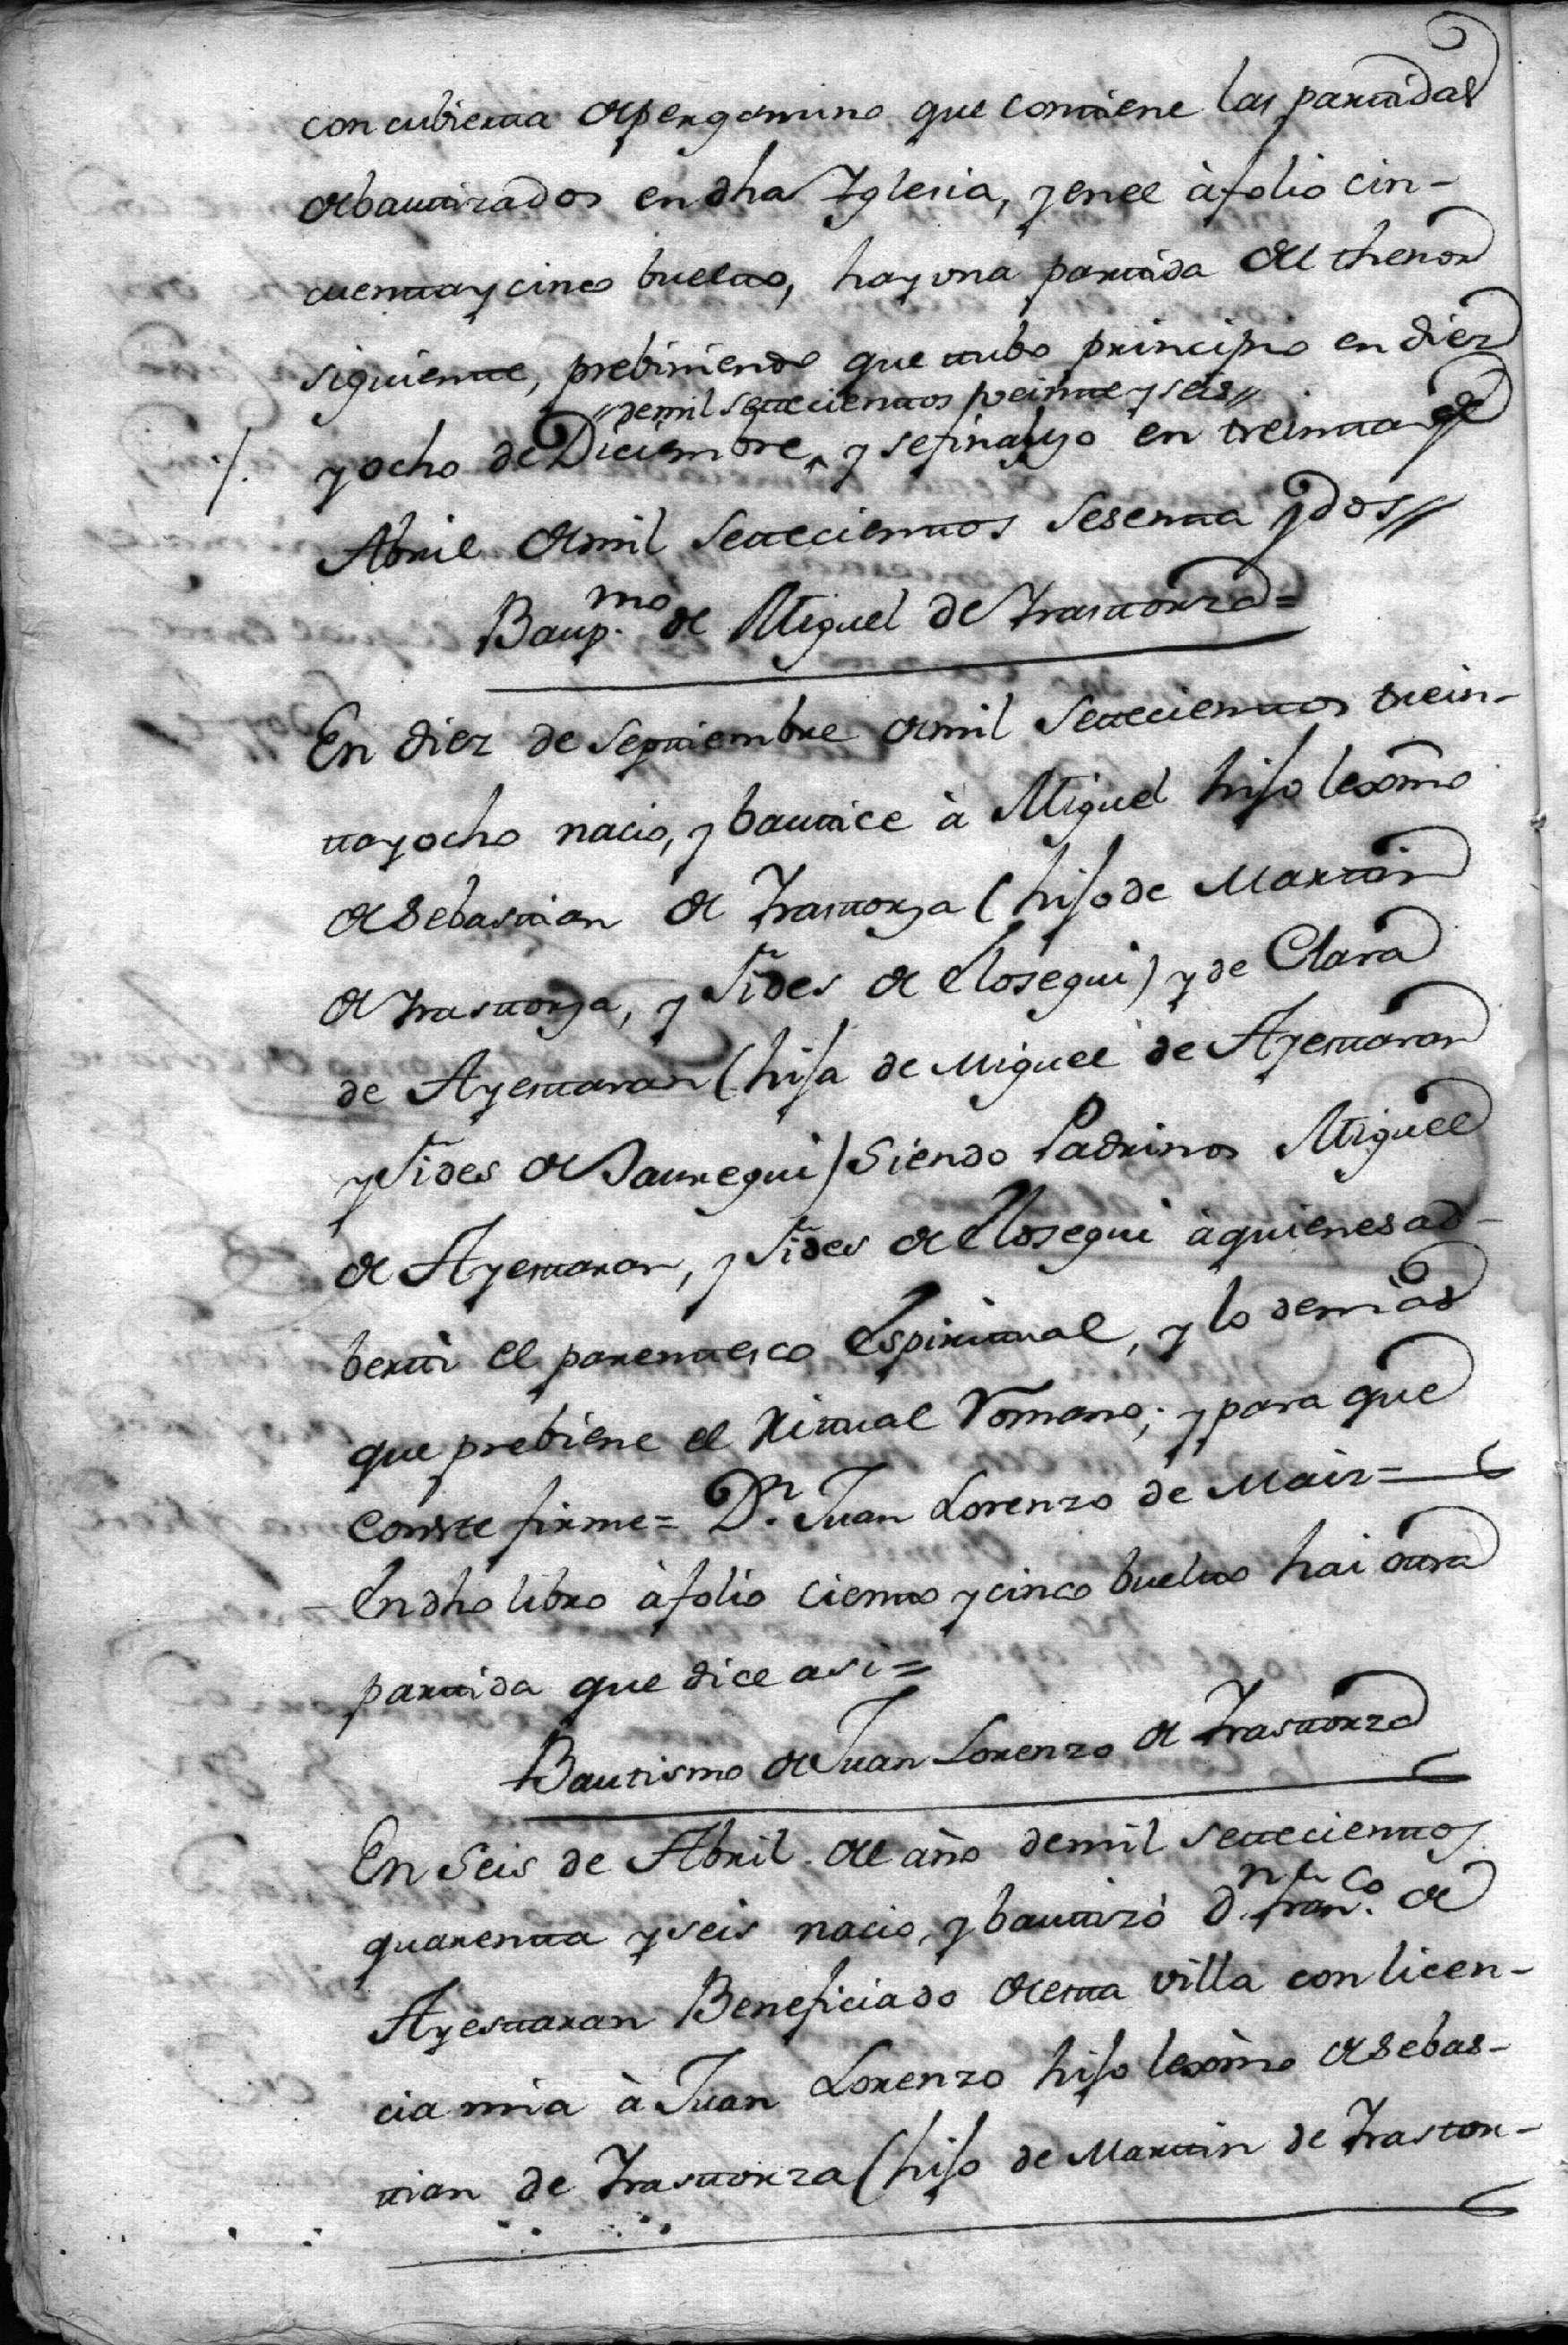 con cubierta de pergamino que contiene las partidas
de bautizados en dha Iglesia, y en el à folio cin-
cuenta y cinco buelto, hay una partida del thenor
siguiente, prebiniendo que tubo principio en diez
"de mil setecientos veinte y seis"
/. y ocho de Diciembre, ^ y se finalizo en treinta de
Abril de mil setecientos sesenta y dos //
Baup.mo de Miguel de Trastorza =
En diez de Septiembre de mil setecientos trein-
ta y ocho nacio, y bautice à Miguel hijo lexmo
de Sebastian de Trastorza (hijo de Martin
de Trastorza, y de Elosegui) y de Clara
de Ayestaran (hija de Miguel de Ayestaran
y de Jauregui) Siendo Padrinos Miguel
de Ayestaran, y de Elosegui à quienes ad-
berti el parentesco Espiritual, y lo demas
que prebiene el Ritual Romano; y para que
conste firme = Dn. Juan Lorenzo de Maiz =
- En dho libro à folio ciento y cinco buelto hai otra
partida que dice asi =
Bautismo de Juan Lorenzo de Trastorza
En Seis de Abril del año de mil setecientos
quarenta y seis nacio, y bautizó Dn. Fran.co de
Ayestaran Beneficiado de esta villa con licen-
cia mia à Juan Lorenzo hijo lexmo de Sebas-
tian de Trastorza (hijo de Martin de Trastor-